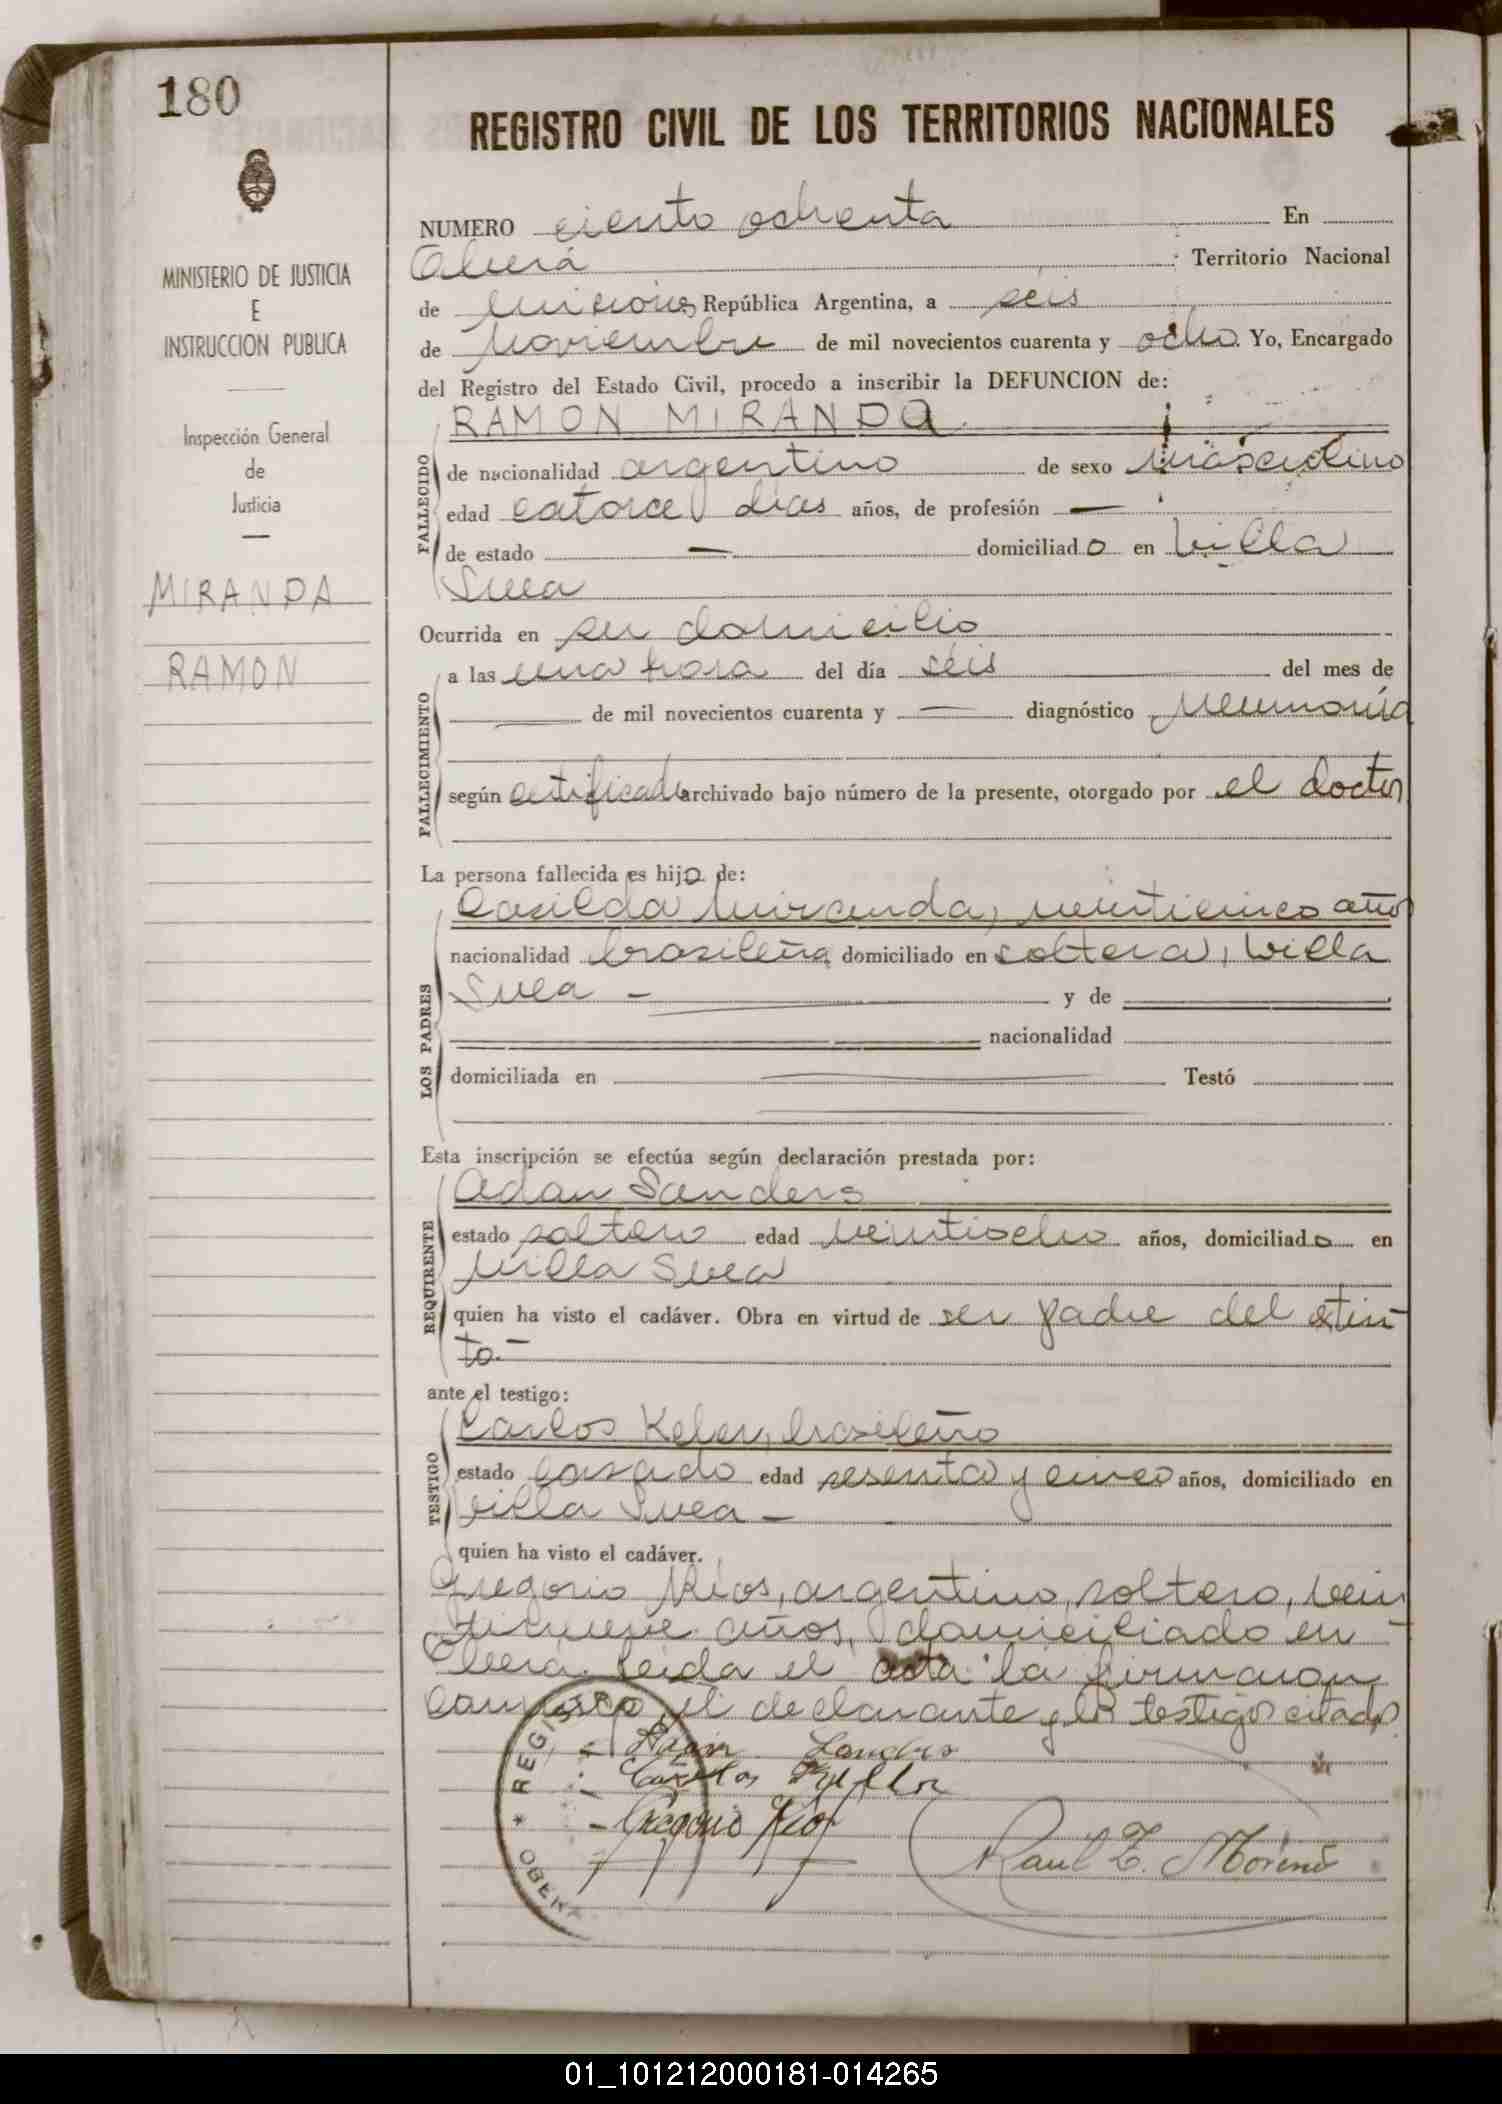 180
REGISTRO CIVIL DE LOS TERRITORIOS NACIONALES
MINISTERIO DE JUSTICIA
E
INSTRUCCION PUBLICA
Inspección General
de
Justicia
MIRANDA
RAMON
NUMERO ciento ochenta En
Oberá Territorio Nacional
de Misiones República Argentina, a seis
de Noviembre de mil novecientos cuarenta y ocho. Yo, Encargado
del Registro del Estado Civil, procedo a inscribir la DEFUNCION de:
RAMON MIRANDA
FALLECIDO
de nacionalidad argentino de sexo masculino
edad catorce dias años, de profesión —
de estado — domiciliado en Villa
Svea
Ocurrida en su domicilio
FALLECIMIENTO
a las una hora del día seis del mes de
de mil novecientos cuarenta y — diagnóstico Neumonía
según certificado archivado bajo número de la presente, otorgado por el doctor
La persona fallecida es hijo de:
LOS PADRES
Casilda Miranda, veinticinco años
nacionalidad brasileña domiciliado en soltera, Villa
Svea — y de
nacionalidad
domiciliada en Testó
Esta inscripción se efectúa según declaración prestada por:
REQUIRENTE
Adan Sanders
estado soltero edad veintiocho años, domiciliado en
Villa Svea
quien ha visto el cadáver. Obra en virtud de ser padre del extin-
to.—
ante el testigo:
TESTIGO
Carlos Keler, brasileño
estado casado edad sesenta y cinco años, domiciliado en
Villa Svea —
quien ha visto el cadáver.
Gregorio Rios, argentino, soltero, vein
tinueve años, domiciliado en
Oberá. Leida el acta la firmaron
conmigo el declarante y los testigos citados
REGISTRO
Carlos
Gregorio Rios
Raul E. Moreno
OBERA
01_101212000181-014265